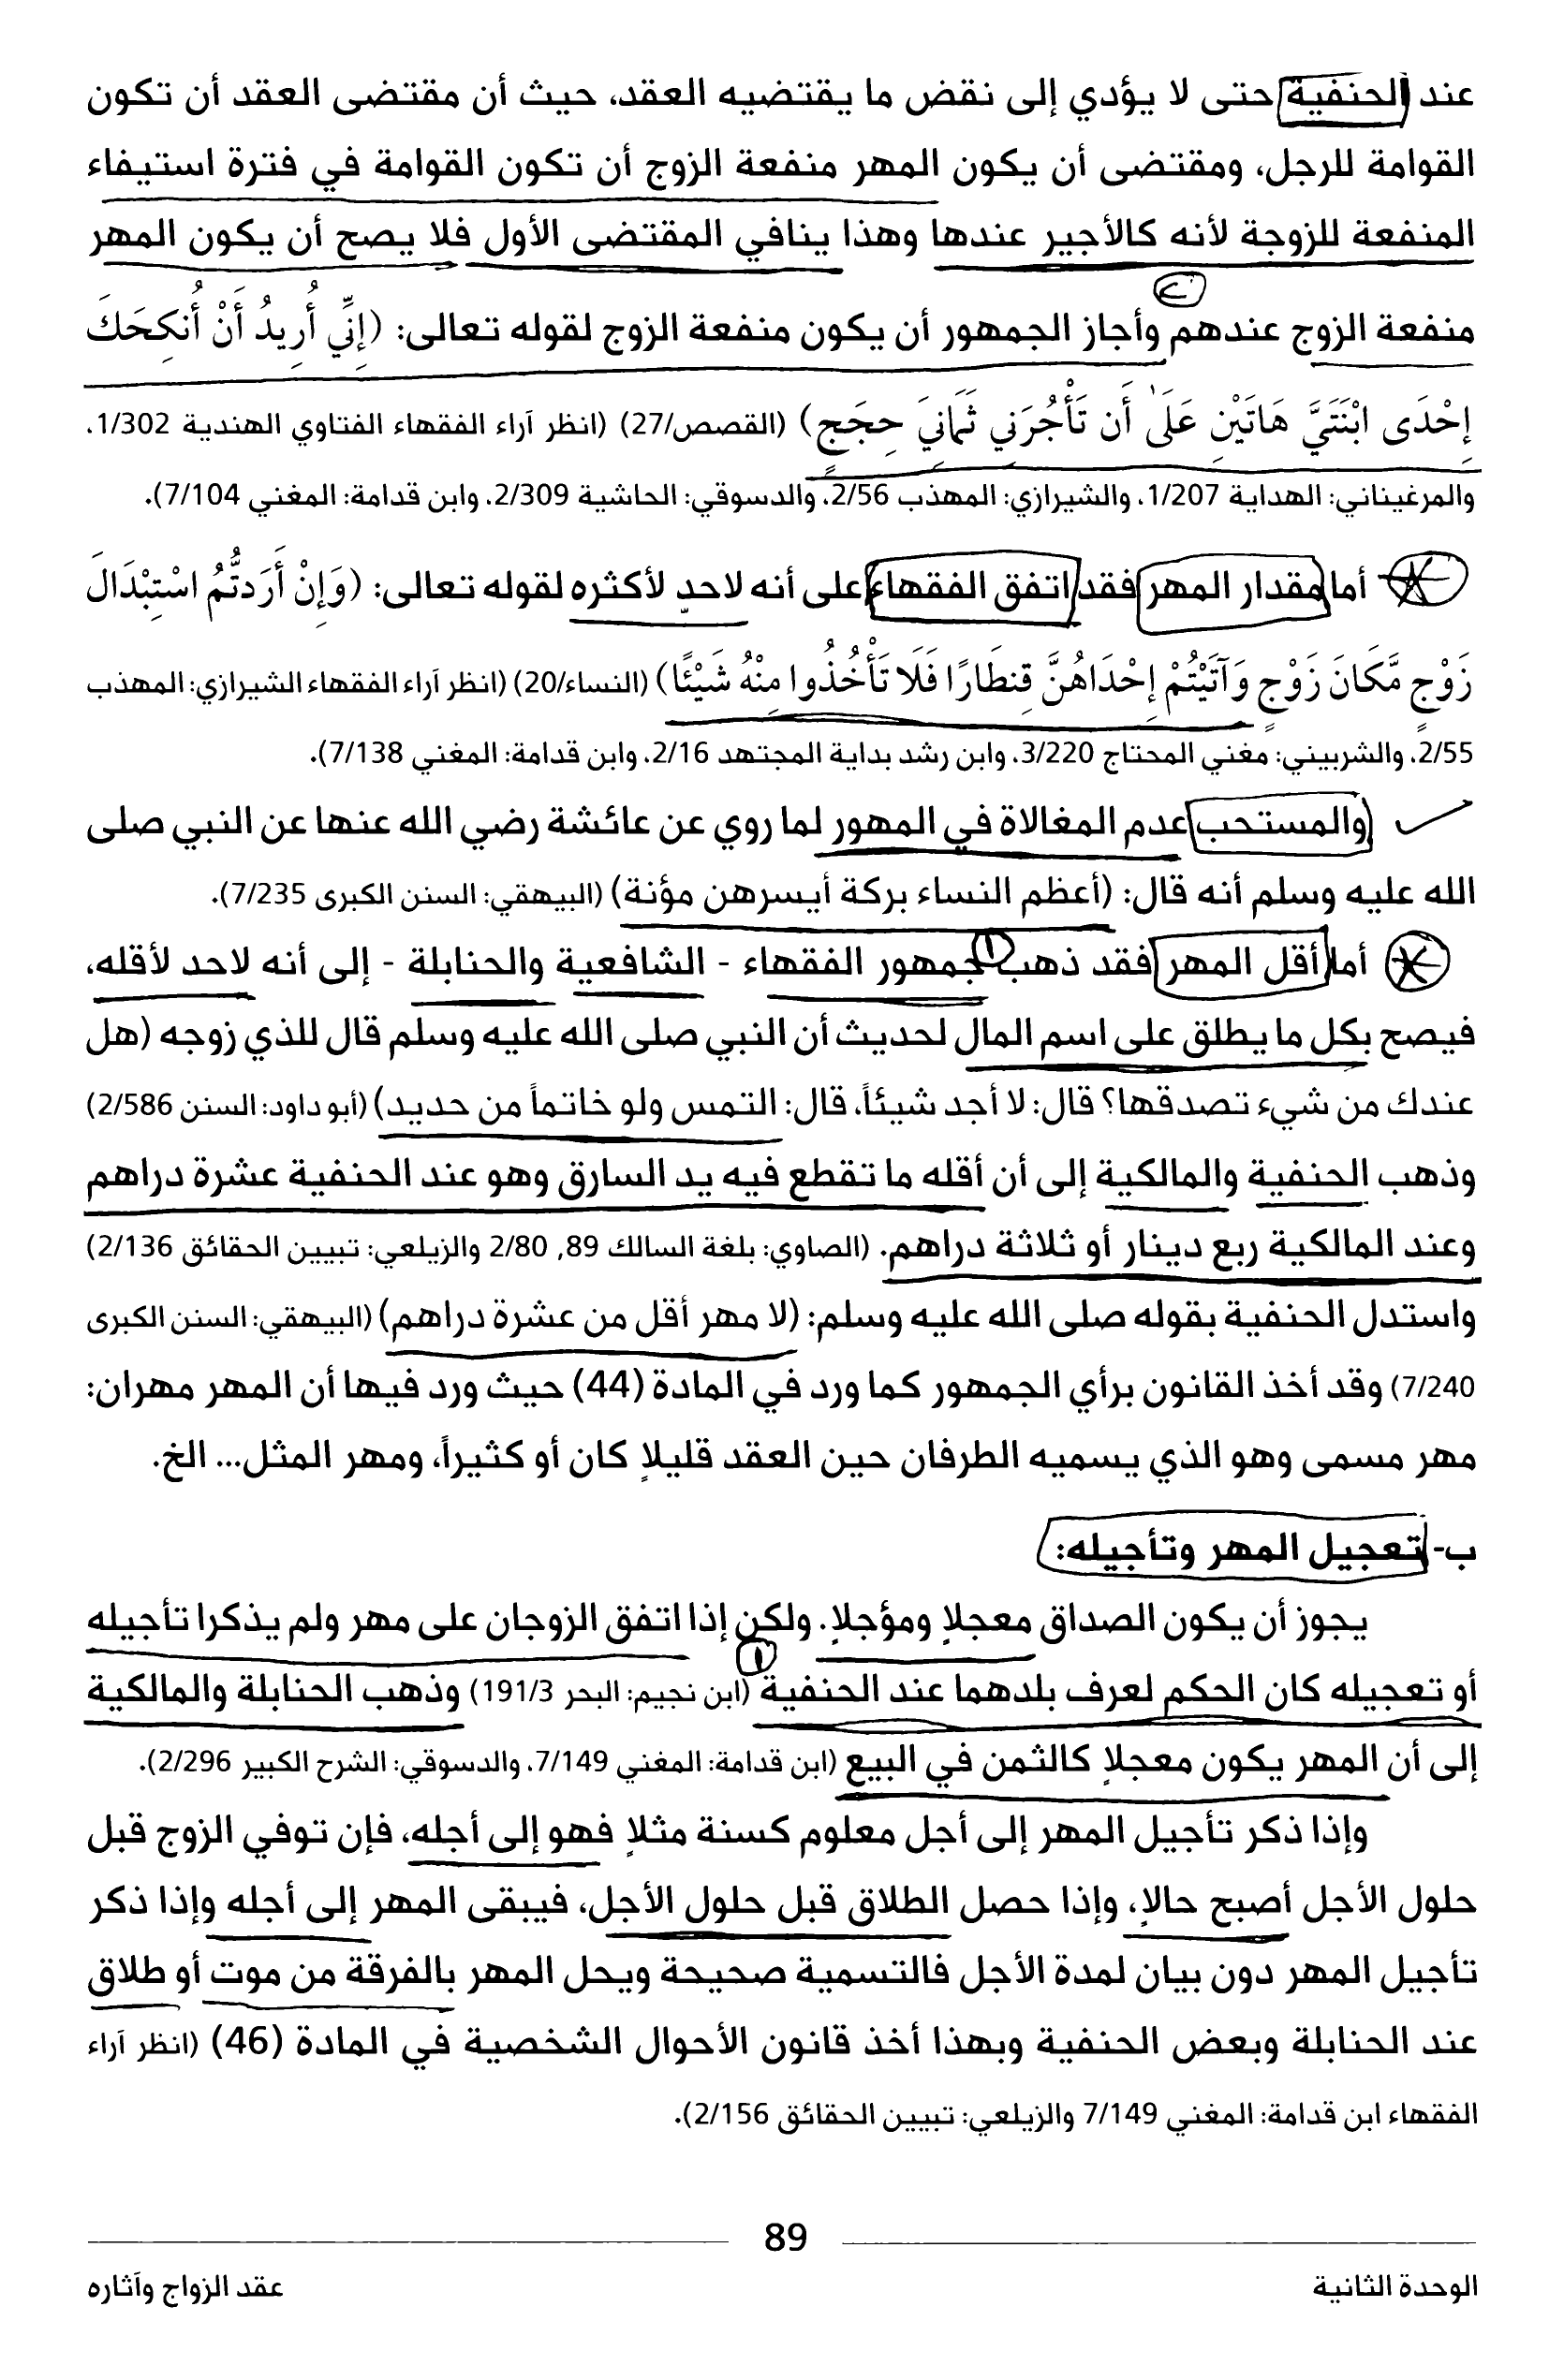 عند الحنفية حتى لا يؤدي إلى نقض ما يقتضيه العقد، حيث أن مقتضى العقد أن تكون
القوامة للرجل، ومقتضى أن يكون المهر منفعة الزوج أن تكون القوامة في فترة استيفاء
المنفعة للزوجة لأنه كالأجير عندها وهذا ينافي المقتضى الأول فلا يصح أن يكون المهر
منفعة الزوج عندهم وأجاز الجمهور أن يكون منفعة الزوج لقوله تعالى: (إِنِّي أُرِيدُ أَنْ أُنكِحَكَ
إِحْدَى ابْنَتَيَّ هَاتَيْنِ عَلَىٰ أَن تَأْجُرَنِي ثَمَانِيَ حِجَجٍ) (القصص/27) (انظر آراء الفقهاء الفتاوي الهندية 1/302،
والمرغيناني: الهداية 1/207، والشيرازي: المهذب 2/56، والدسوقي: الحاشية 2/309، وابن قدامة: المغني 7/104).
أما مقدار المهر فقد اتفق الفقهاء على أنه لاحدٍ لأكثره لقوله تعالى: (وَإِنْ أَرَدتُّمُ اسْتِبْدَالَ
زَوْجٍ مَّكَانَ زَوْجٍ وَآتَيْتُمْ إِحْدَاهُنَّ قِنطَارًا فَلَا تَأْخُذُوا مِنْهُ شَيْئًا) (النساء/20) (انظر آراء الفقهاء الشيرازي: المهذب
2/55، والشربيني: مغني المحتاج 3/220، وابن رشد بداية المجتهد 2/16، وابن قدامة: المغني 7/138).
والمستحب عدم المغالاة في المهور لما روي عن عائشة رضي الله عنها عن النبي صلى
الله عليه وسلم أنه قال: (أعظم النساء بركة أيسرهن مؤنة) (البيهقي: السنن الكبرى 7/235).
أما أقل المهر فقد ذهب جمهور الفقهاء - الشافعية والحنابلة - إلى أنه لاحد لأقله،
فيصح بكل ما يطلق على اسم المال لحديث أن النبي صلى الله عليه وسلم قال للذي زوجه (هل
عندك من شيء تصدقها؟ قال: لا أجد شيئاً، قال: التمس ولو خاتماً من حديد) (أبو داود: السنن 2/586)
وذهب الحنفية والمالكية إلى أن أقله ما تقطع فيه يد السارق وهو عند الحنفية عشرة دراهم
وعند المالكية ربع دينار أو ثلاثة دراهم. (الصاوي: بلغة السالك 89, 2/80 والزيلعي: تبيين الحقائق 2/136)
واستدل الحنفية بقوله صلى الله عليه وسلم: (لا مهر أقل من عشرة دراهم) (البيهقي: السنن الكبرى
7/240) وقد أخذ القانون برأي الجمهور كما ورد في المادة (44) حيث ورد فيها أن المهر مهران:
مهر مسمى وهو الذي يسميه الطرفان حين العقد قليلاٍ كان أو كثيراً، ومهر المثل... الخ.
ب- تعجيل المهر وتأجيله:
يجوز أن يكون الصداق معجلاٍ ومؤجلاٍ. ولكن إذا اتفق الزوجان على مهر ولم يذكرا تأجيله
أو تعجيله كان الحكم لعرف بلدهما عند الحنفية (ابن نجيم: البحر 191/3) وذهب الحنابلة والمالكية
إلى أن المهر يكون معجلاٍ كالثمن في البيع (ابن قدامة: المغني 7/149، والدسوقي: الشرح الكبير 2/296).
وإذا ذكر تأجيل المهر إلى أجل معلوم كسنة مثلاٍ فهو إلى أجله، فإن توفي الزوج قبل
حلول الأجل أصبح حالاٍ، وإذا حصل الطلاق قبل حلول الأجل، فيبقى المهر إلى أجله وإذا ذكر
تأجيل المهر دون بيان لمدة الأجل فالتسمية صحيحة ويحل المهر بالفرقة من موت أو طلاق
عند الحنابلة وبعض الحنفية وبهذا أخذ قانون الأحوال الشخصية في المادة (46) (انظر آراء
الفقهاء ابن قدامة: المغني 7/149 والزيلعي: تبيين الحقائق 2/156).
89
الوحدة الثانية
عقد الزواج وآثاره